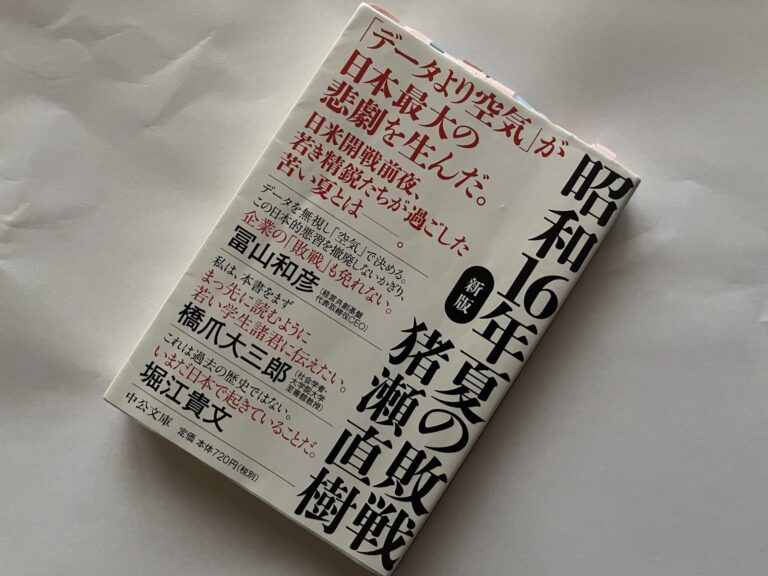 昭和16年夏の敗戦
新版
猪瀬直樹
「データより空気」が
日本最大の
悲劇を生んだ。
日米開戦前夜、
若き精鋭たちが過ごした
苦い夏とは──。
データを無視し「空気」で決める。
この日本的悪習を撤廃しないかぎり、
企業の「敗戦」も免れない。
冨山和彦
(経営共創基盤
代表取締役CEO)
私は、本書をまず
まっ先に読むように
若い学生諸君に伝えたい。
橋爪大三郎
(社会学者・
大学院大学
至善館教授)
これは過去の歴史ではない。
いまだ日本で起きていることだ。
堀江貴文
中公文庫
定価 本体720円(税別)